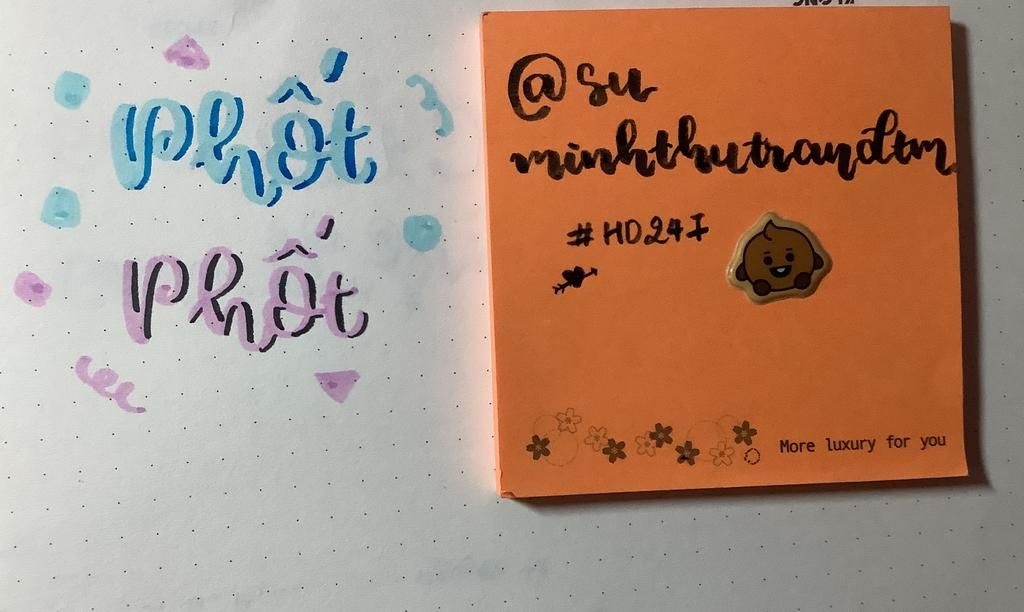 Phốt
Phốt
@su
minhthutrandtm
#HD247
More luxury for you